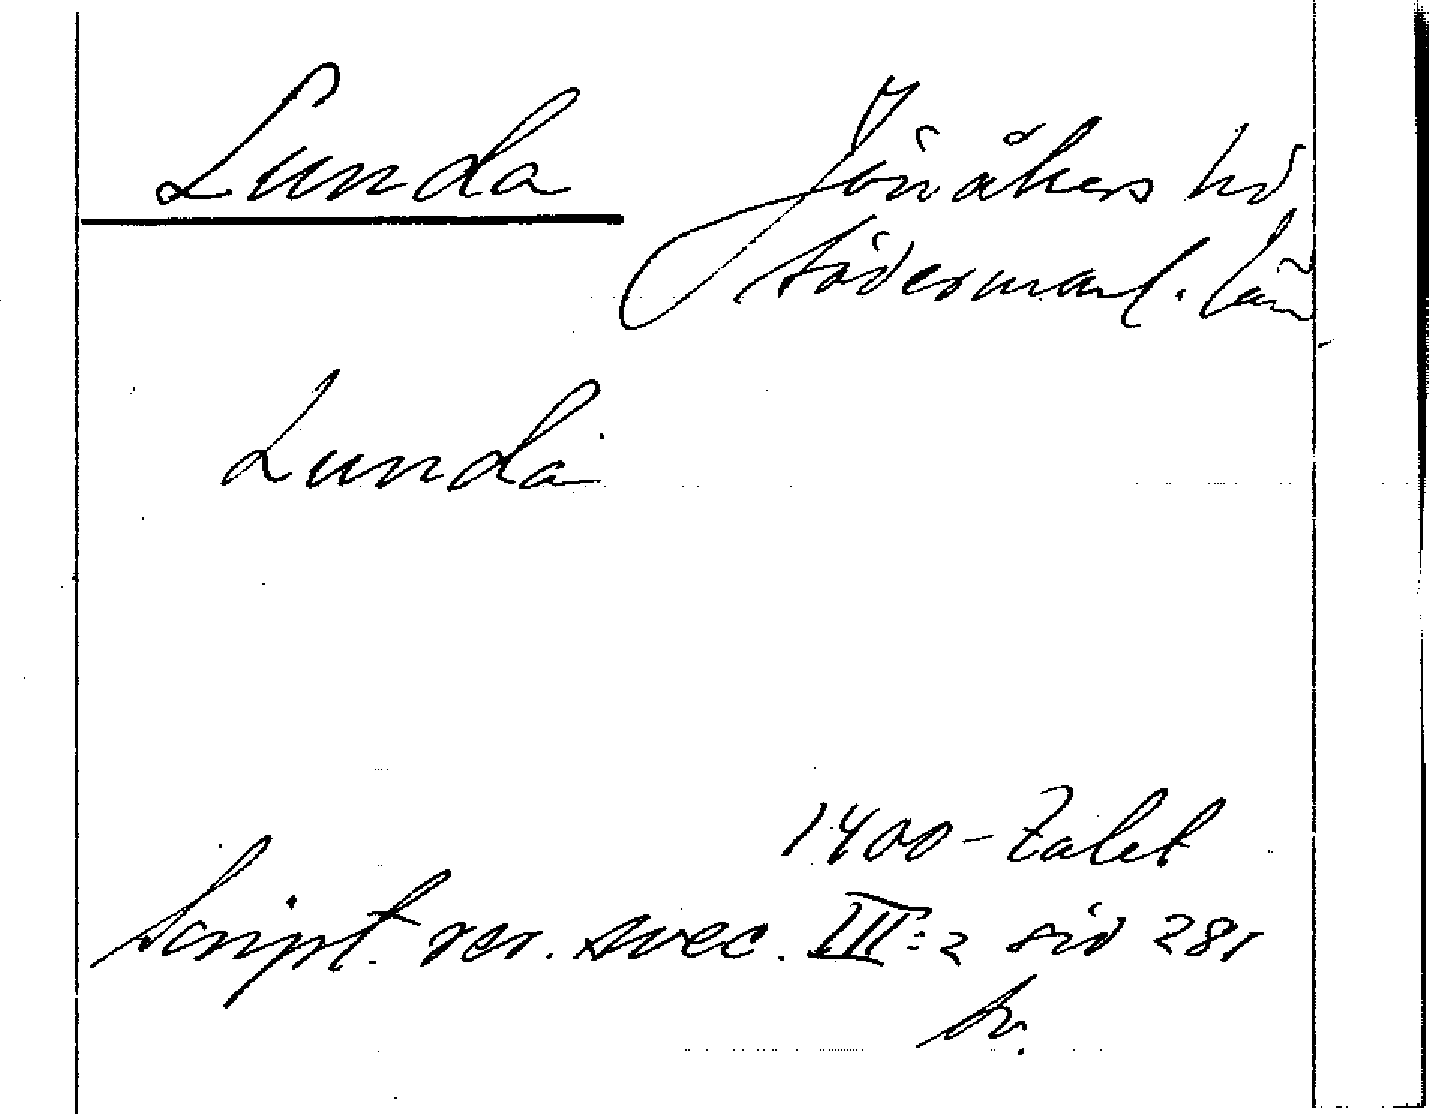 Lunda Jönåkers hd
Södermanl. län
Lunda
1400-talet
Script. rer. svec. III:2 sid 285